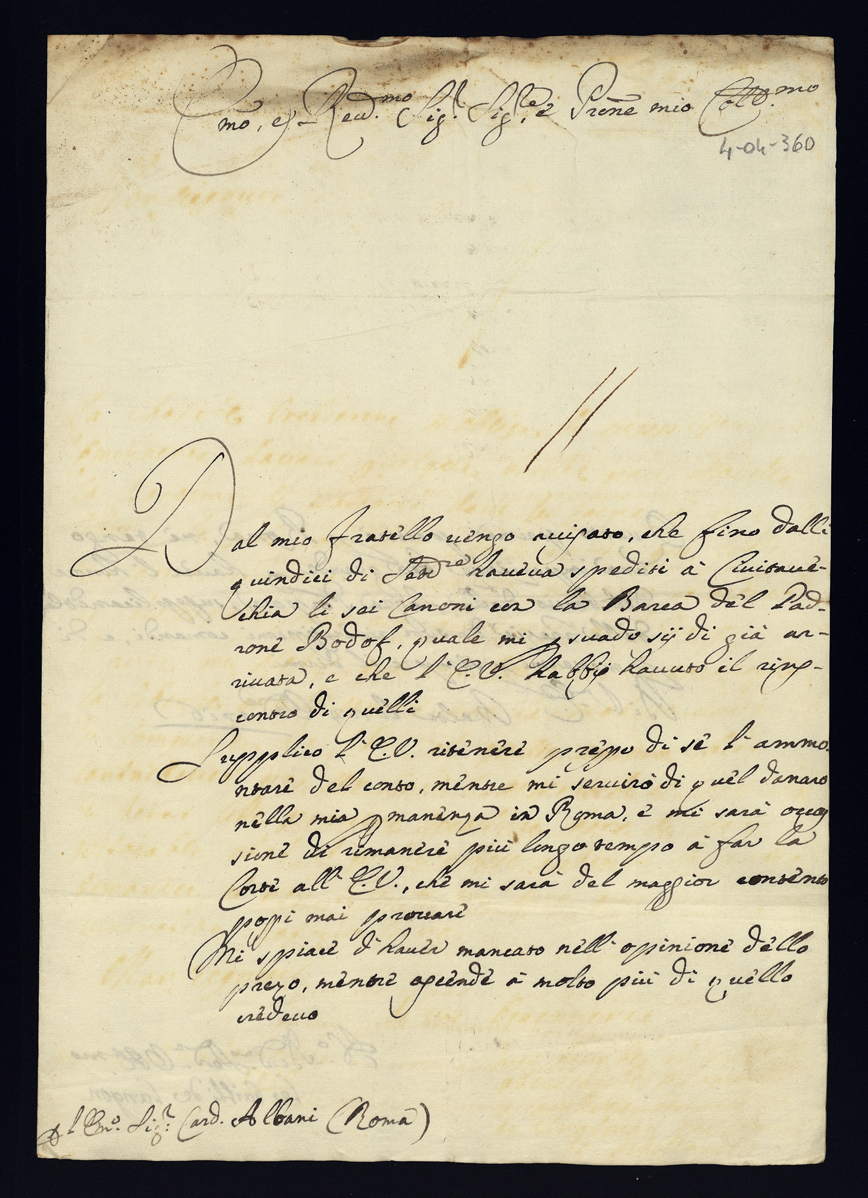 Emo, e Reud.mo Sig.r Sig.re, e Prone mio Coll.mo
4-04-360
Dal mio fratello vengo auisato, che fino dalli
quindici di Setd.re haueua spediti à Ciuitaue-
chia li sei Canoni con la Barca del Pad-
rone Bodof, quale mi psuado sij di già ar-
riuata, e che l'E.V. habbij hauuto il rinp-
contro di quelli
Supplico l'E.V. ritenere presso di se l'ammo.
ntare del conto, mentre mi seruirò di quel danaro
nella mia pmanenza in Roma, e mi sarà occa
sione di rimanere più longo tempo à far la
Corte all'E.V., che mi sarà del maggior contento
possi mai prouare
Mi spiace d'hauer mancato nell'opinione dello
prezo, mentre ascende à molto più di quello
credeuo
Emo. Sig.r Card. Albani (Roma)